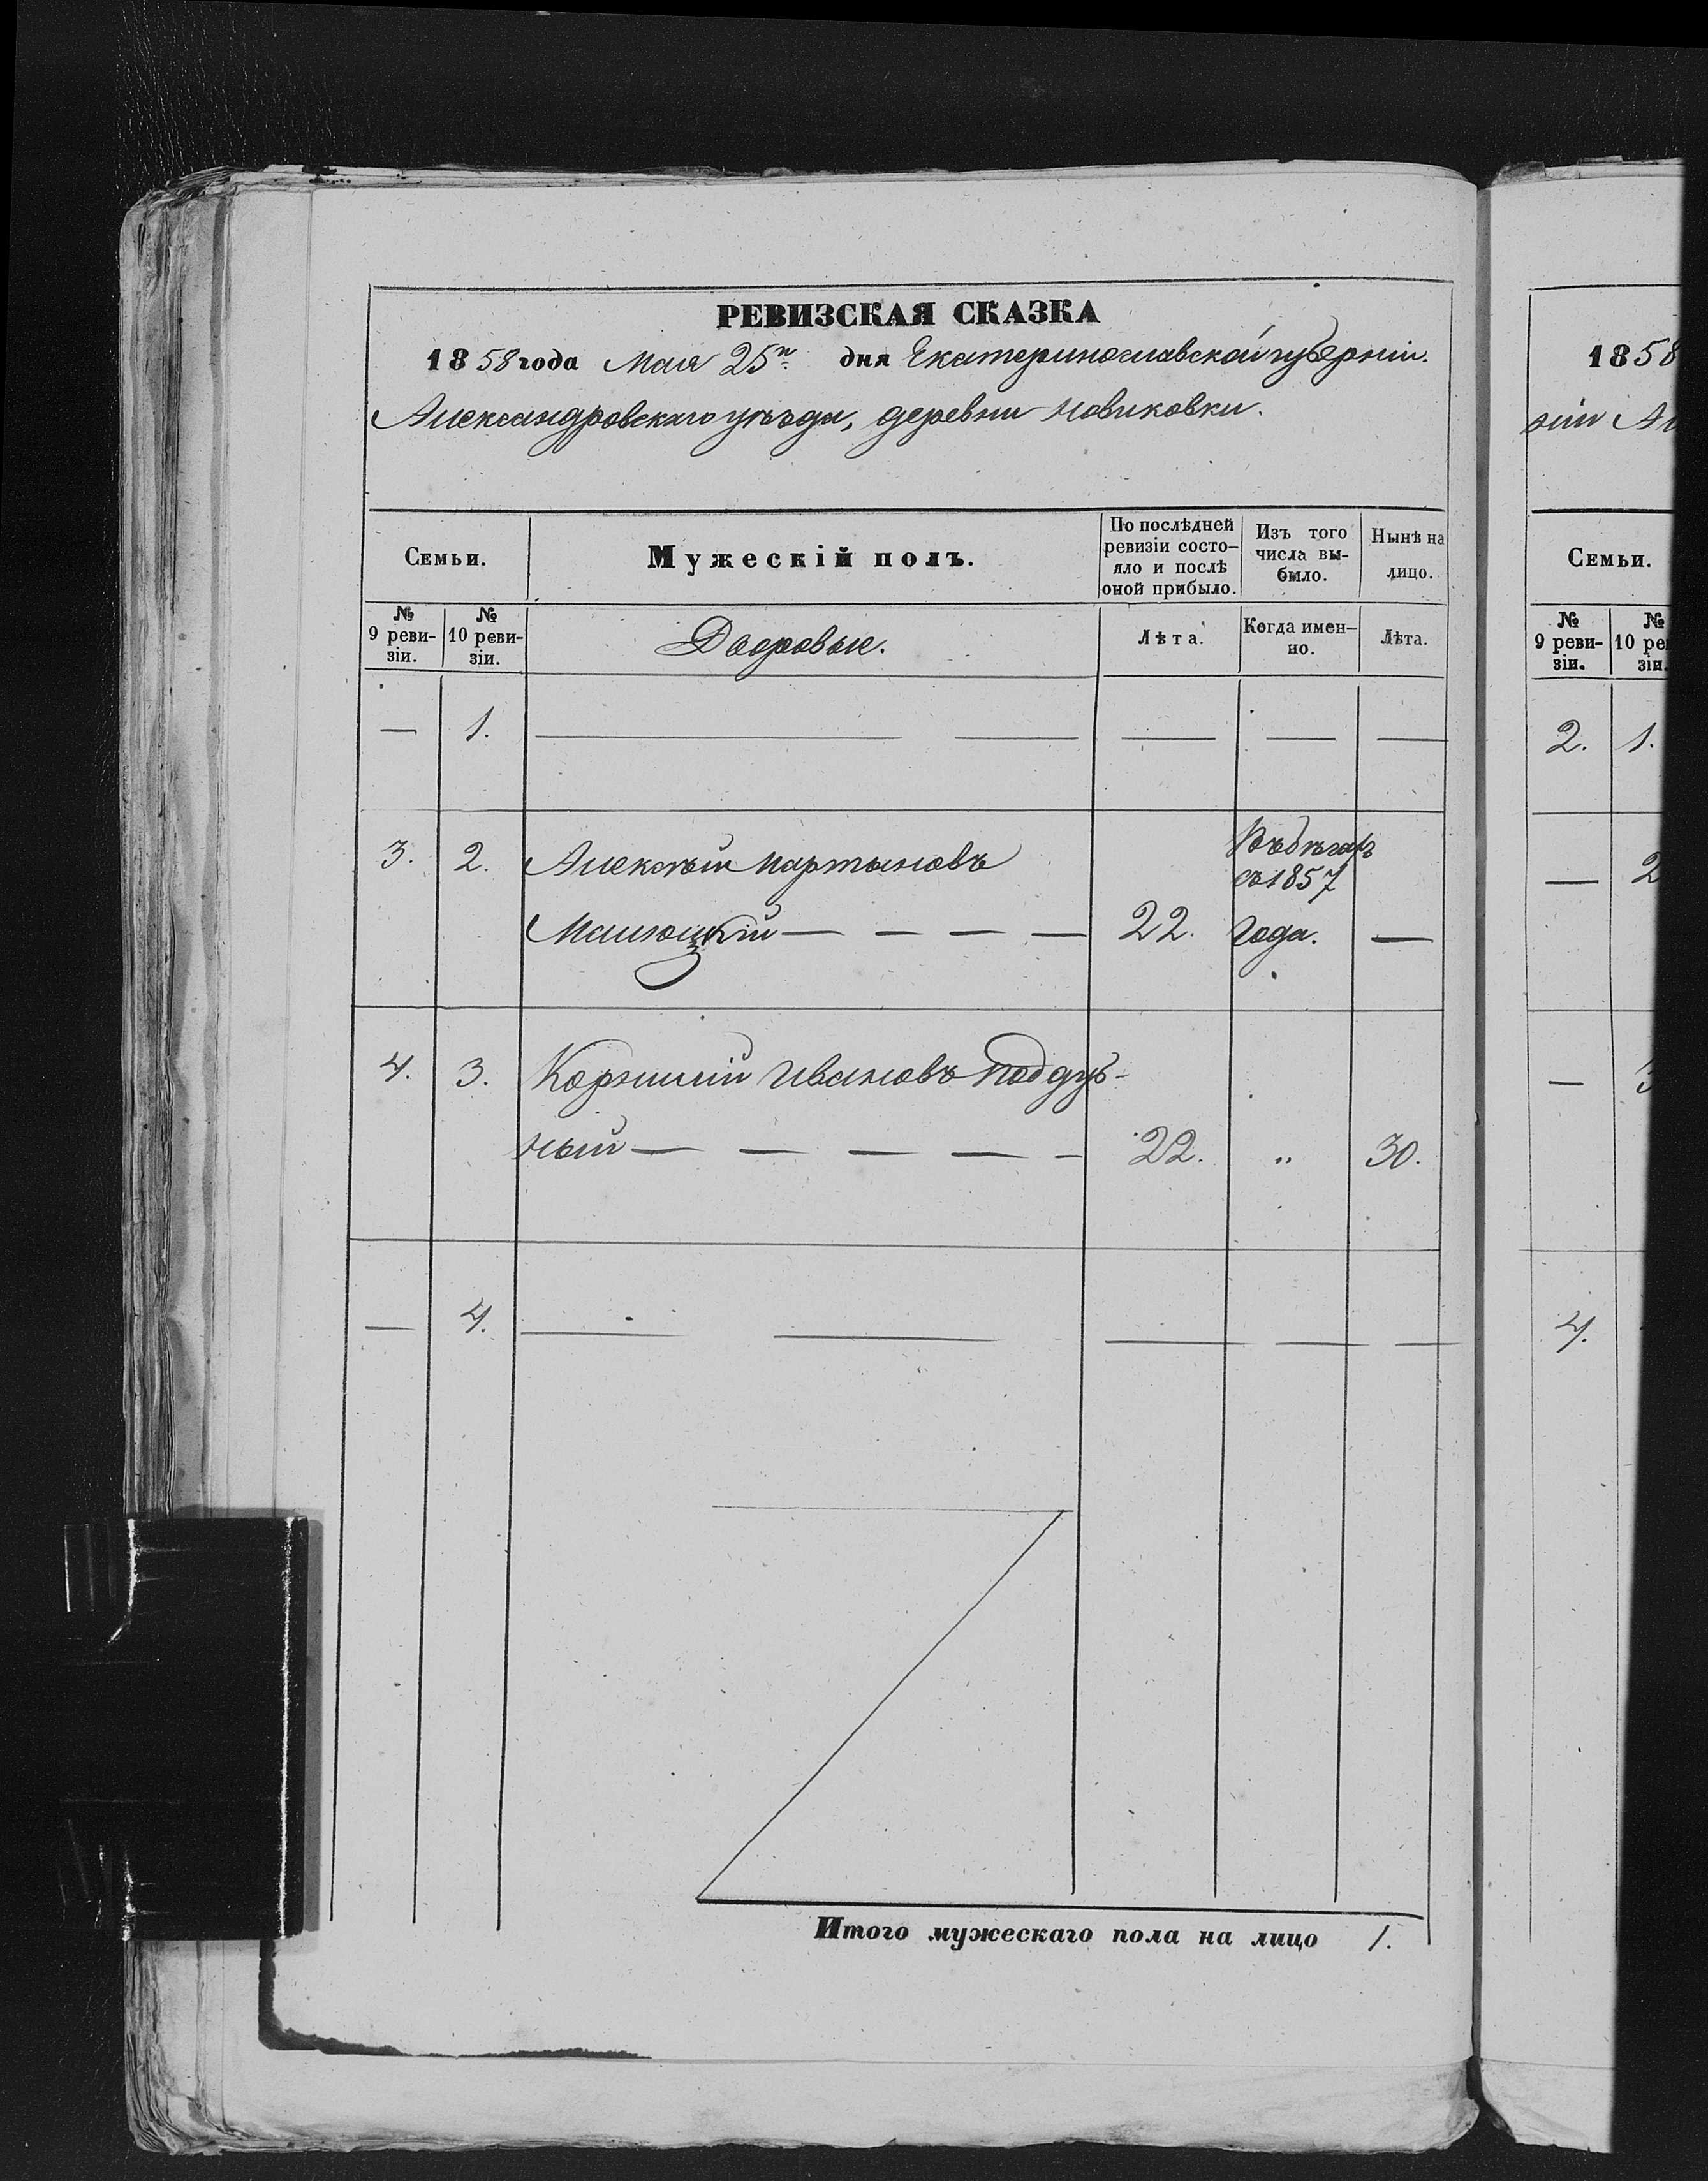 РЕВИЗСКАЯ СКАЗКА
1858 года Мая 25го дня Екатеринославской губерніи.
Александровскаго уѣзда, деревни Новиковки.
Семьи.
Мужескій полъ.
По послѣдней ревизіи состо-
яло и послѣ оной прибыло.
Изъ того числа вы-
было.
Нынѣ на лицо.
№ 9 реви-
зіи.
№ 10 реви-
зіи.
Дворовые.
Лѣта.
Когда имен-
но.
Лѣта.
— 1. — — — — —
3. 2. Алексѣй Мартыновъ
Въ бѣгахъ
съ 1857
22. года. —
4. 3. Корнилій Ивановъ Поддуб-
ный — — — — — 22. " 30.
— 4. — — — — —
Итого мужескаго пола на лицо 1.
1858
ніи
Семьи.
№ 9 реви-
зіи.
№ 10
2. 1.
— 2
—
4.